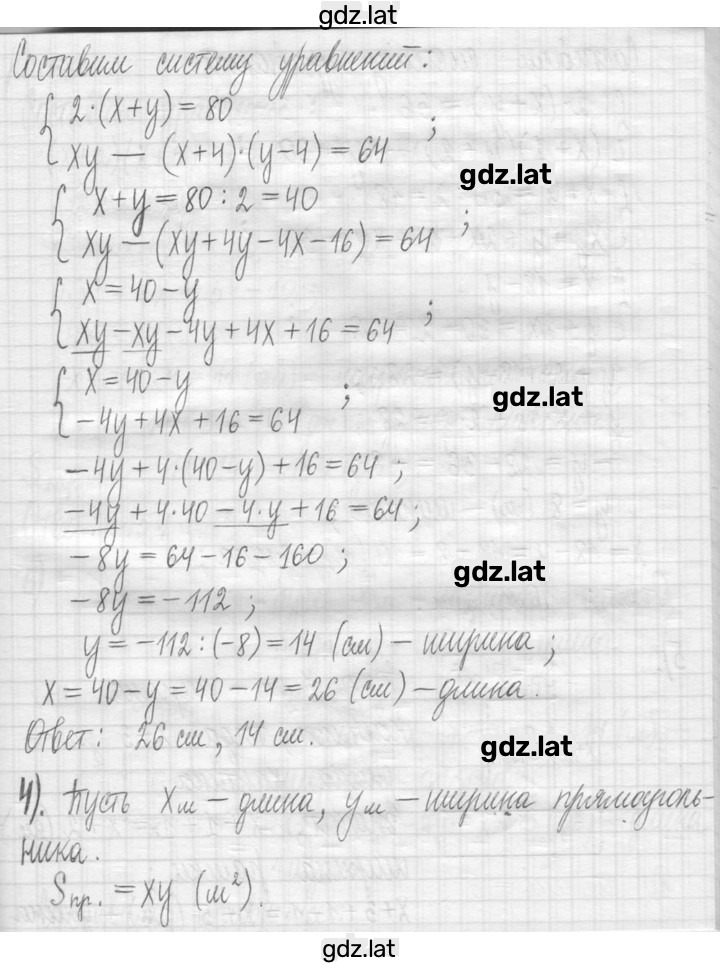 gdz.lat
Составим систему уравнений:
{ 2·(x+y) = 80
xy — (x+4)·(y-4) = 64 ;
gdz.lat
{ x+y = 80:2 = 40
xy — (xy+4y-4x-16) = 64 ;
{ x = 40-y
xy-xy-4y+4x+16 = 64 ;
{ x = 40-y
-4y+4x+16 = 64 ;
gdz.lat
-4y+4·(40-y)+16 = 64 ;
-4y+4·40-4·y+16 = 64 ;
-8y = 64-16-160 ;
gdz.lat
-8y = -112 ;
y = -112:(-8) = 14 (см) - ширина ;
x = 40-y = 40-14 = 26 (см) - длина.
Ответ: 26 см, 14 см.
gdz.lat
4). Пусть x м - длина, y м - ширина прямоуголь-
ника.
Sпр. = xy (м²).
gdz.lat